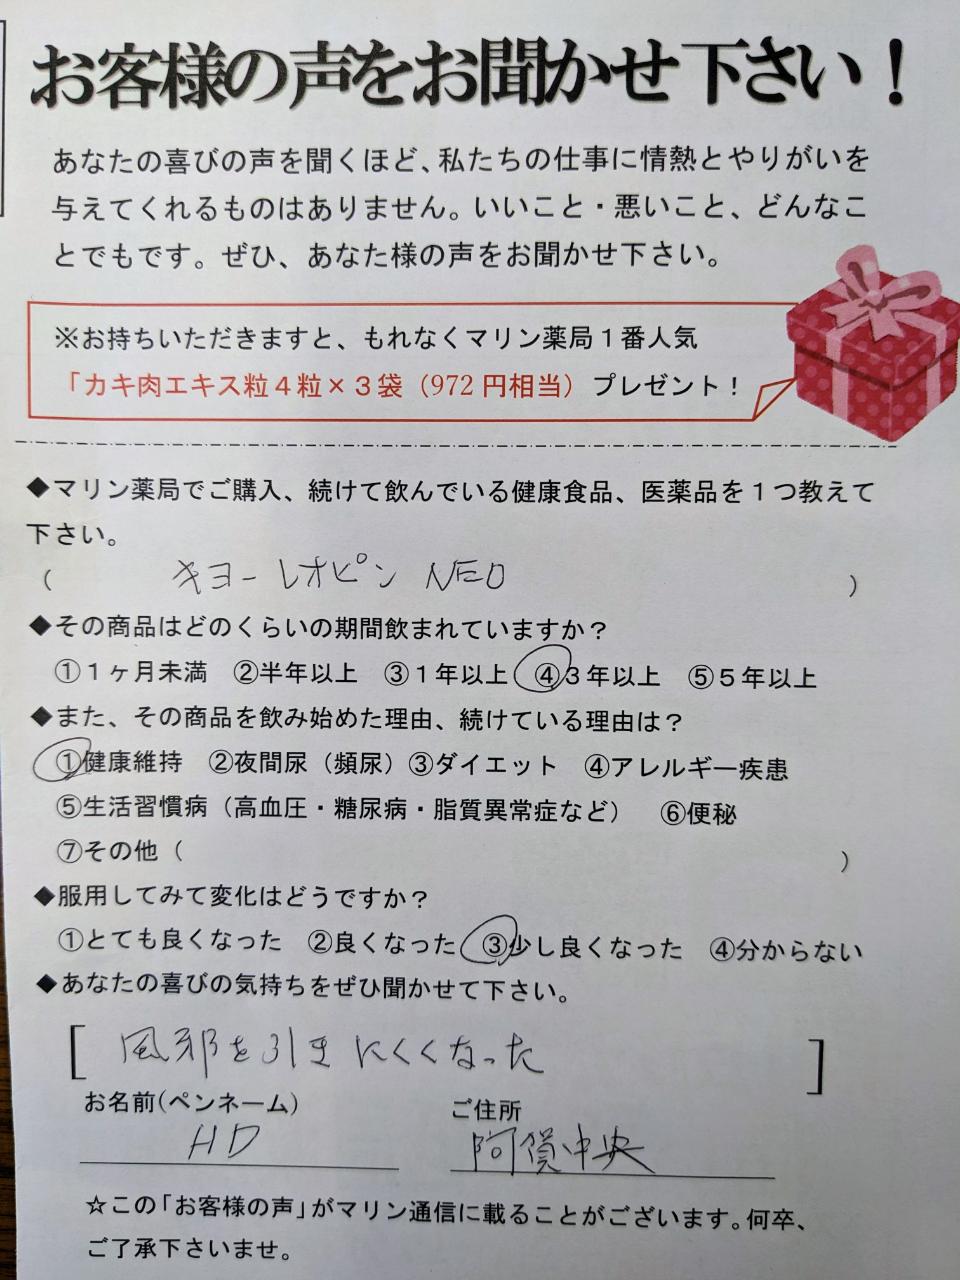 お客様の声をお聞かせ下さい！
あなたの喜びの声を聞くほど、私たちの仕事に情熱とやりがいを
与えてくれるものはありません。いいこと・悪いこと、どんなこ
とでもです。ぜひ、あなた様の声をお聞かせ下さい。
※お持ちいただきますと、もれなくマリン薬局１番人気
「カキ肉エキス粒４粒×３袋（972円相当）プレゼント！
◆マリン薬局でご購入、続けて飲んでいる健康食品、医薬品を１つ教えて
下さい。
（ キヨーレオピン NEO ）
◆その商品はどのくらいの期間飲まれていますか？
①１ヶ月未満 ②半年以上 ③１年以上 ④３年以上 ⑤５年以上
◆また、その商品を飲み始めた理由、続けている理由は？
①健康維持 ②夜間尿（頻尿）③ダイエット ④アレルギー疾患
⑤生活習慣病（高血圧・糖尿病・脂質異常症など） ⑥便秘
⑦その他（ ）
◆服用してみて変化はどうですか？
①とても良くなった ②良くなった ③少し良くなった ④分からない
◆あなたの喜びの気持ちをぜひ聞かせて下さい。
[ 風邪を引きにくくなった ]
お名前(ペンネーム) ご住所
HD 阿賀中央
☆この「お客様の声」がマリン通信に載ることがございます。何卒、
ご了承下さいませ。